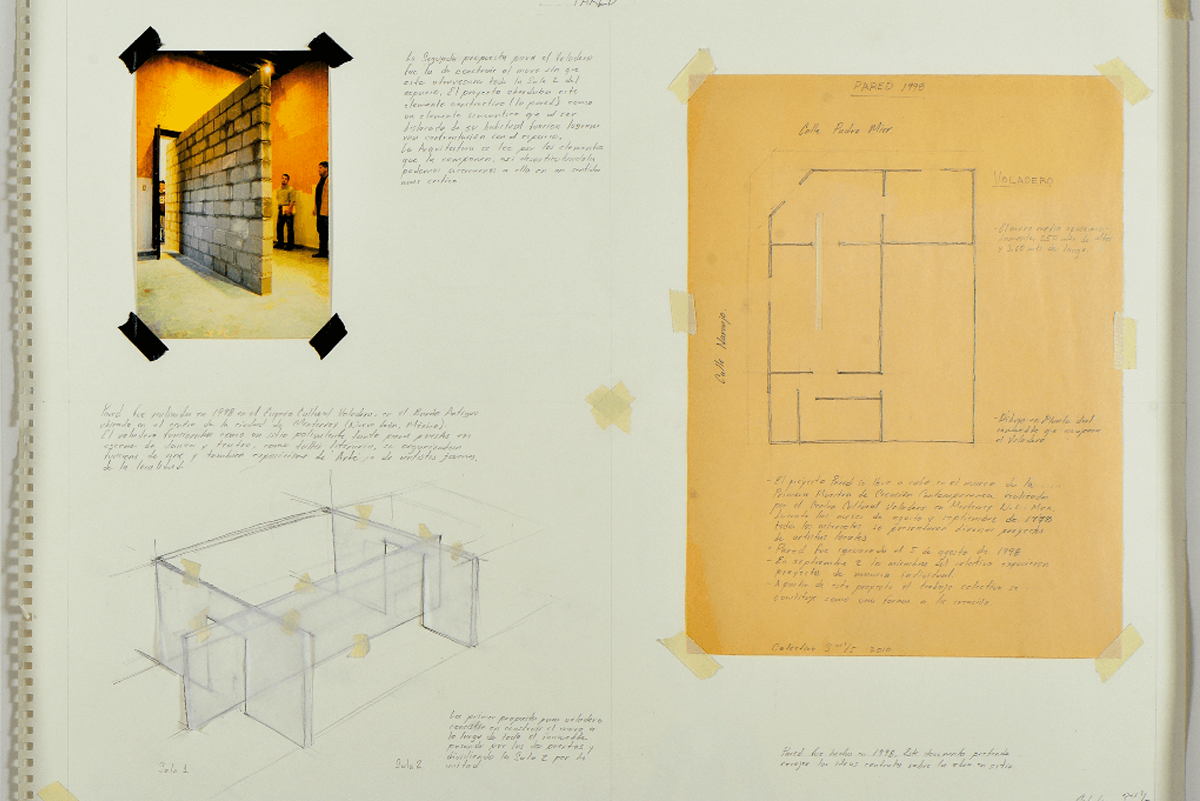 PARED
La Segunda propuesta para el Voladero
fue la de construir el muro sin que
este atravesara toda la Sala 2 del
espacio. El proyecto abordaba este
elemento constructivo (la pared) como
un elemento semantico que al ser
dislocado de su habitual funcion
una confrontacion con el espacio.
La Arquitectura se lee por los elementos
que la componen, asi
podemos acercarnos a ella en un sentido
mas critico.
Pared fue realizada en 1998 en el Espacio Cultural Voladero, en el Barrio Antiguo
ubicado en el centro de la ciudad de Monterrey (Nuevo León, México)
El voladero funcionaba como un sitio polivalente tanto para puestas en
escena de danza y teatro, como talles literarios, se organizaban
de cine y tambien exposiciones de Arte de artistas jovenes,
de la localidad.
Sala 1
Sala 2
La primer propuesta para voladero
consistia en construir el muro a
lo largo de todo el inmueble
pasando por las dos puertas y
dividiendo la Sala 2 por la
mitad.
PARED 1998
Calle Padre Mier
VOLADERO
- El muro media aproxima-
damente, 2.50 mts de altos
y 3.60 mts de largo.
Calle Naranjo.
- Dibujo en Planta del
inmueble que ocupara
el Voladero
- El proyecto Pared se llevo a cabo en el marco de la
Primera Muestra de Creación Contemporanea realizada
por el Centro Cultural Voladero en Monterrey N.L. Mex.
durante los meses de agosto y septiembre de 1998
todos los miercoles se presentaron diversos proyectos
de artistas locales
- Pared fue inaugurada el 5 de agosto de 1998
- En septiembre 2 miembros del colectivo expusieron
proyectos de manera individual.
- A partir de este proyecto el trabajo colectivo se
constituye como una forma a la creación.
Colectivo 3 2010
Pared fue hecha en 1998. Este documento pretende
recoger las ideas centrales sobre la obra en sitio